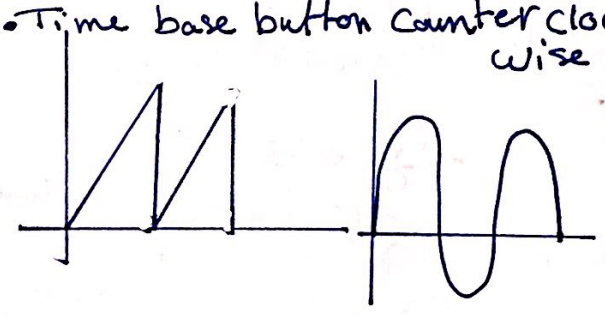 •Time base button Counter clo
wise